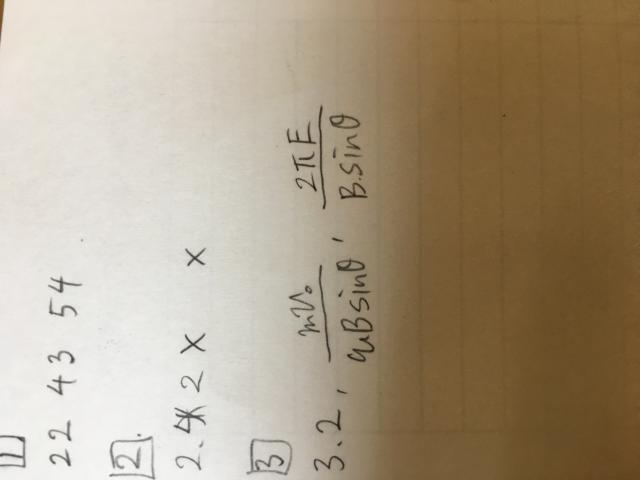 1
22 43 54
2.
2.4 2 × ×
3
3.2, mv₀/qBsinθ, 2πE/B·sinθ